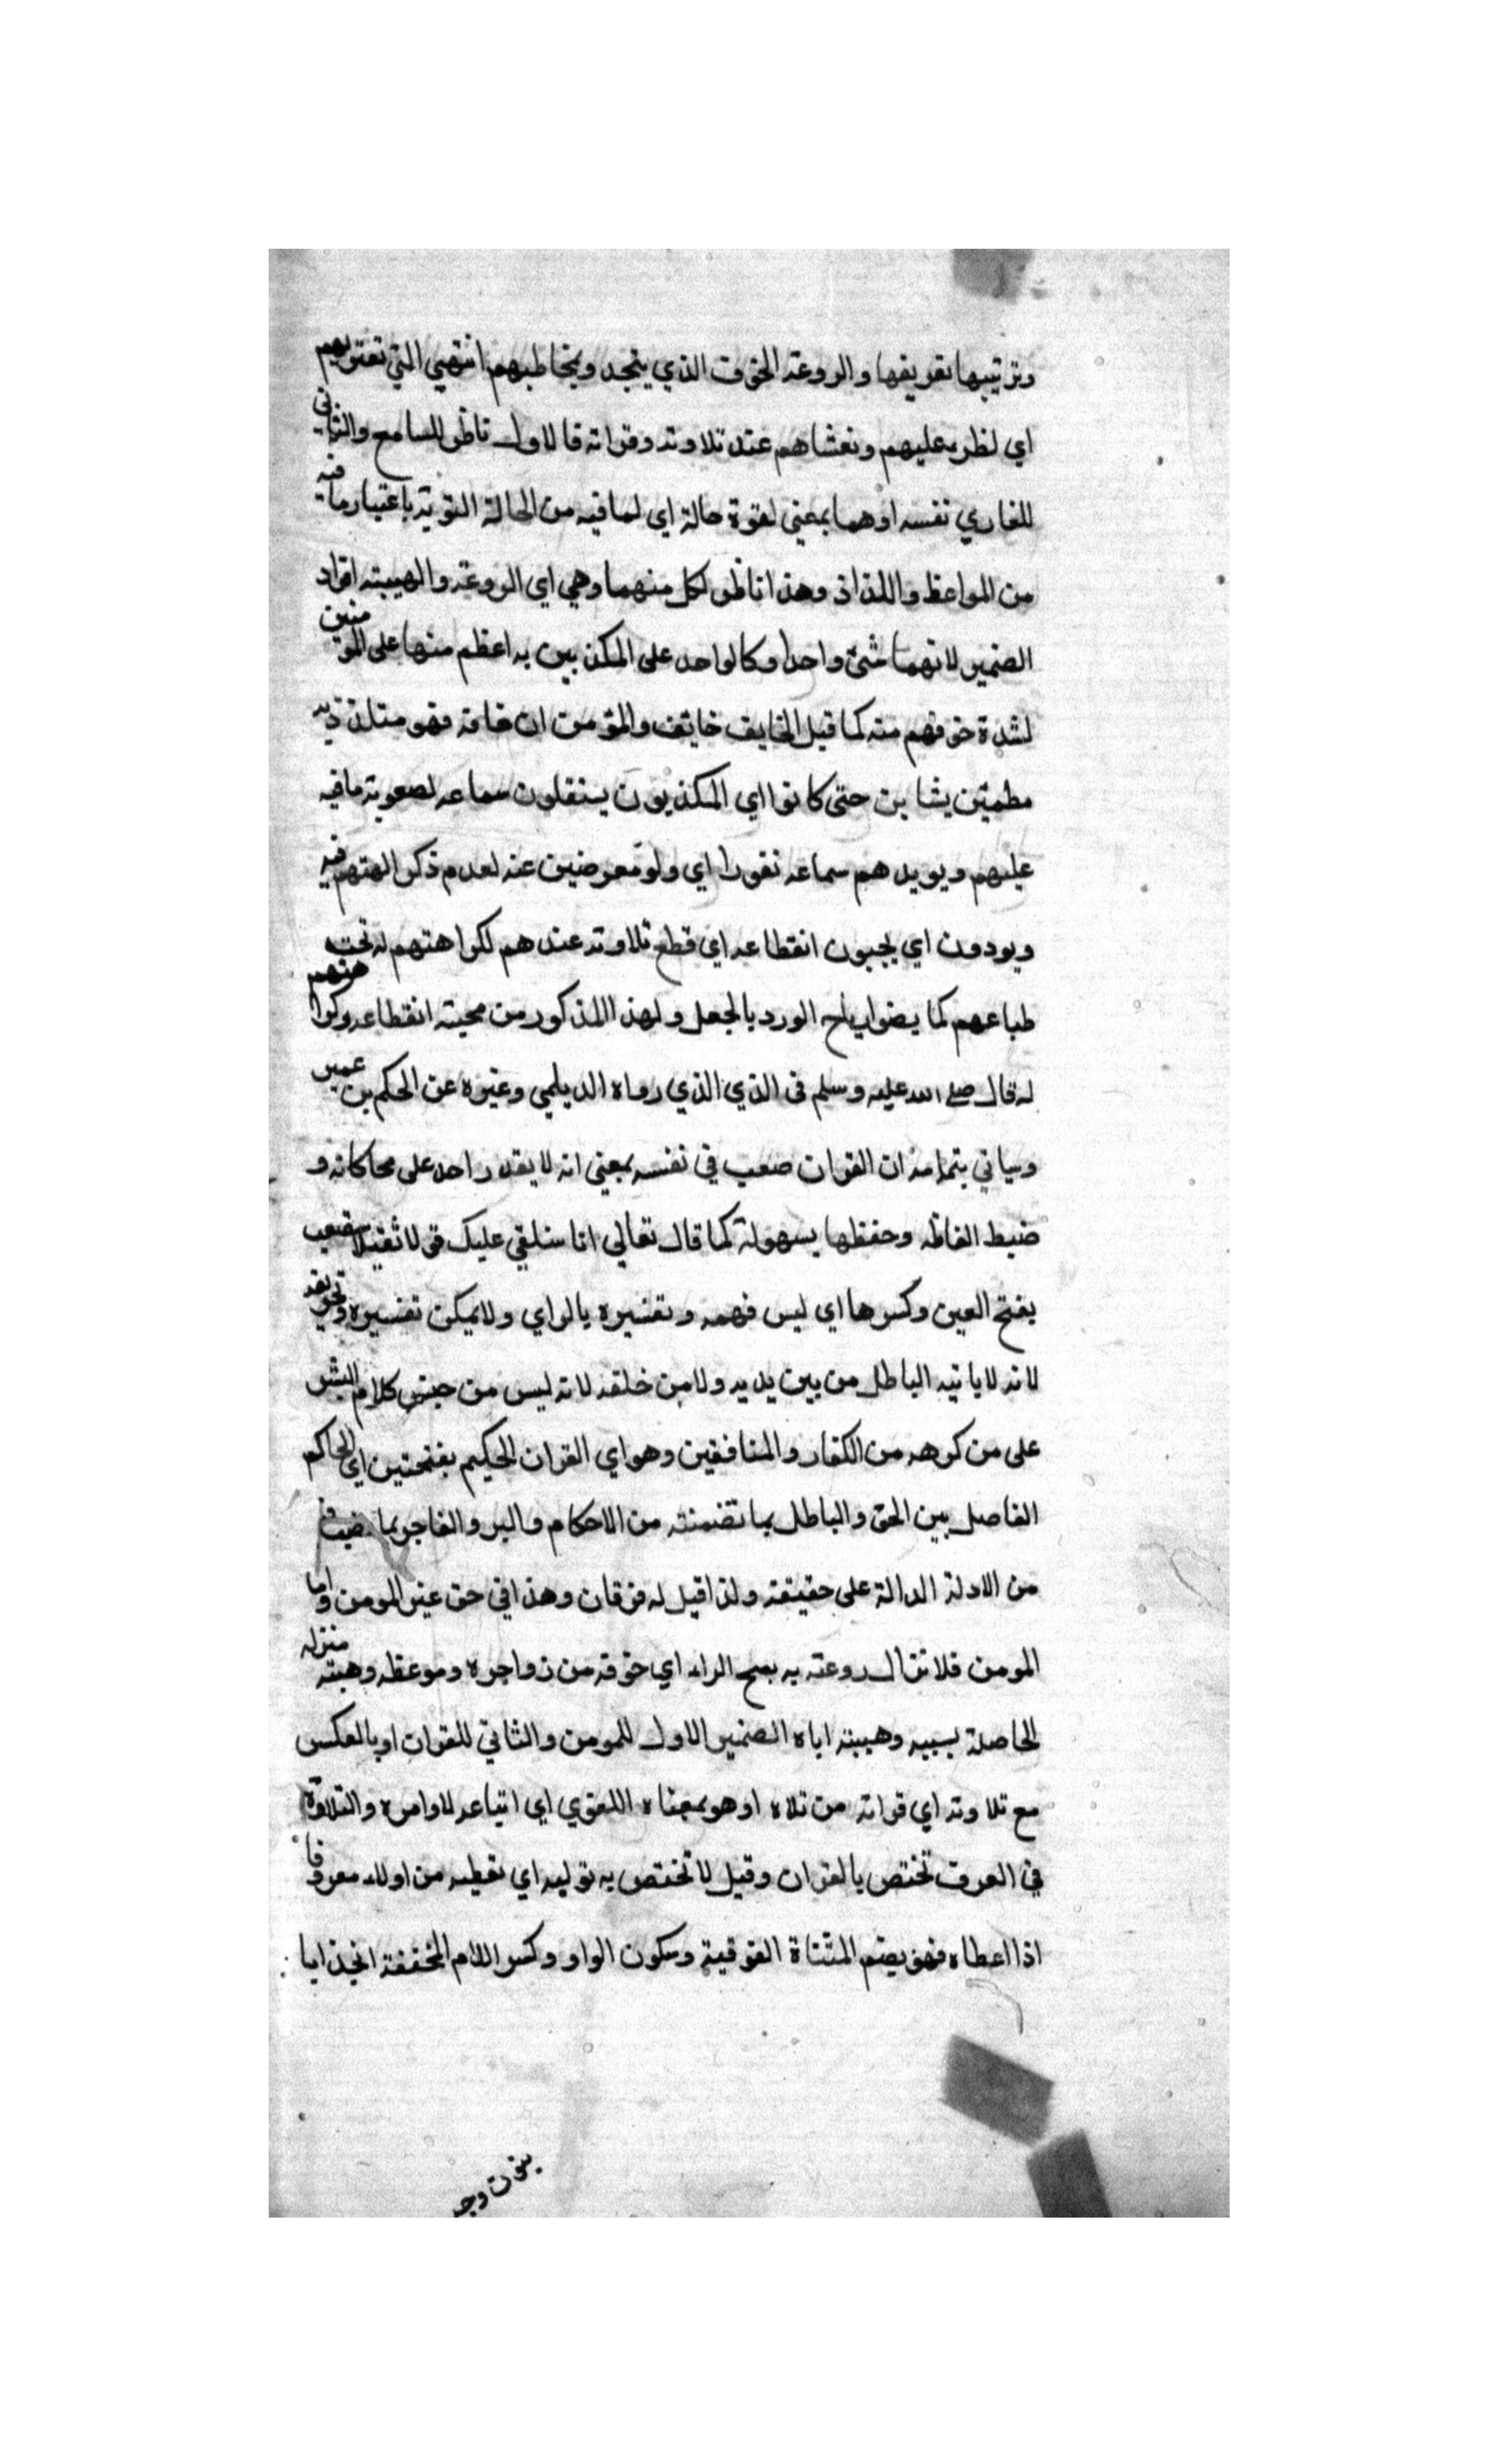 وترتيبها تعريفها والروعة الخوف الذي يتجدد ويخاطبهم انتهي التي تعتريهم
اي لطريه عليهم وتغشاهم عند تلاوته وقراته فالاول ناظر للسامع والثاني
للقاري نفسه اوهما بمعني لقوة حالة اي لما فيه من الحالة القوية باعتبار ما فيه
من المواعظ واللذاذ وهذا ناظر لكل منهما وهي اي الروعة والهيبة افراد
الضمير لانهما شئ واحد اوكالواحد على المكذبين به اعظم منها على المؤمنين
لشدة خوفهم منه كما قيل الخايف خايف والمؤمن ان خافه فهو متلذذ به
مطمئن حتى كانوا اي المكذبون يستقلون سماعه لصعوبة ما فيه
عليهم ويزيدهم سماعه نفورا اي ولو معرضين عنه لعدم ذكر الهتهم فيه
ويودون اي يحبون انقطاعه اي قطع تلاوته عندهم لكراهتهم له
طباعهم كما يضر رياح الورد بالجعل ولهذا المذكور من محبته انقطاعه وكراهتهم
له قال صلى الله عليه وسلم في الذي الذي رواه الديلمي وغيره عن الحكم بن عمير
وسياتي بتمامه ان القران صعب في نفسه بمعني انه لا يقدر احد على محاكاته و
ضبط الفاظه وحفظها بسهولة كما قال تعالي انا سنلقي عليك قولا ثقيلا
بفتح العين وكسرها اي ليس فهمه وتفسيره بالراي ولا يمكن تفسيره وتحريفه
لانه لا ياتيه الباطل من بين يديه ولا من خلفه لانه ليس من جنس كلام البشر
على من كرهه من الكفار والمنافقين وهو اي القران الحكيم بفتحتين اي الحاكم
الفاصل بين الحق والباطل بما تضمنته من الاحكام والبر والفاجر بما
من الادلة الدالة على حقيقته ولذا قيل له فرقان وهذا في حق غير المومن واما
المومن فلا تزال روعته به بفتح الراء اي خوفه من زواجره وموعظه وهيبته منزله
الحاصلة بسببه وهيبته اياه الضمير الاول للمومن والثاني للقران او بالعكس
مع تلاوته اي قراته من تلاه او هو بمعناه اللغوي اي اتباعه لاوامره والتلاوة
في العرف تختص بالقران وقيل لا تختص به توليه اي تعطيه من اولاه معروفا
اذا اعطاه فهو بضم المثناة الفوقية وسكون الواو وكسر اللام المخففة انجذابا